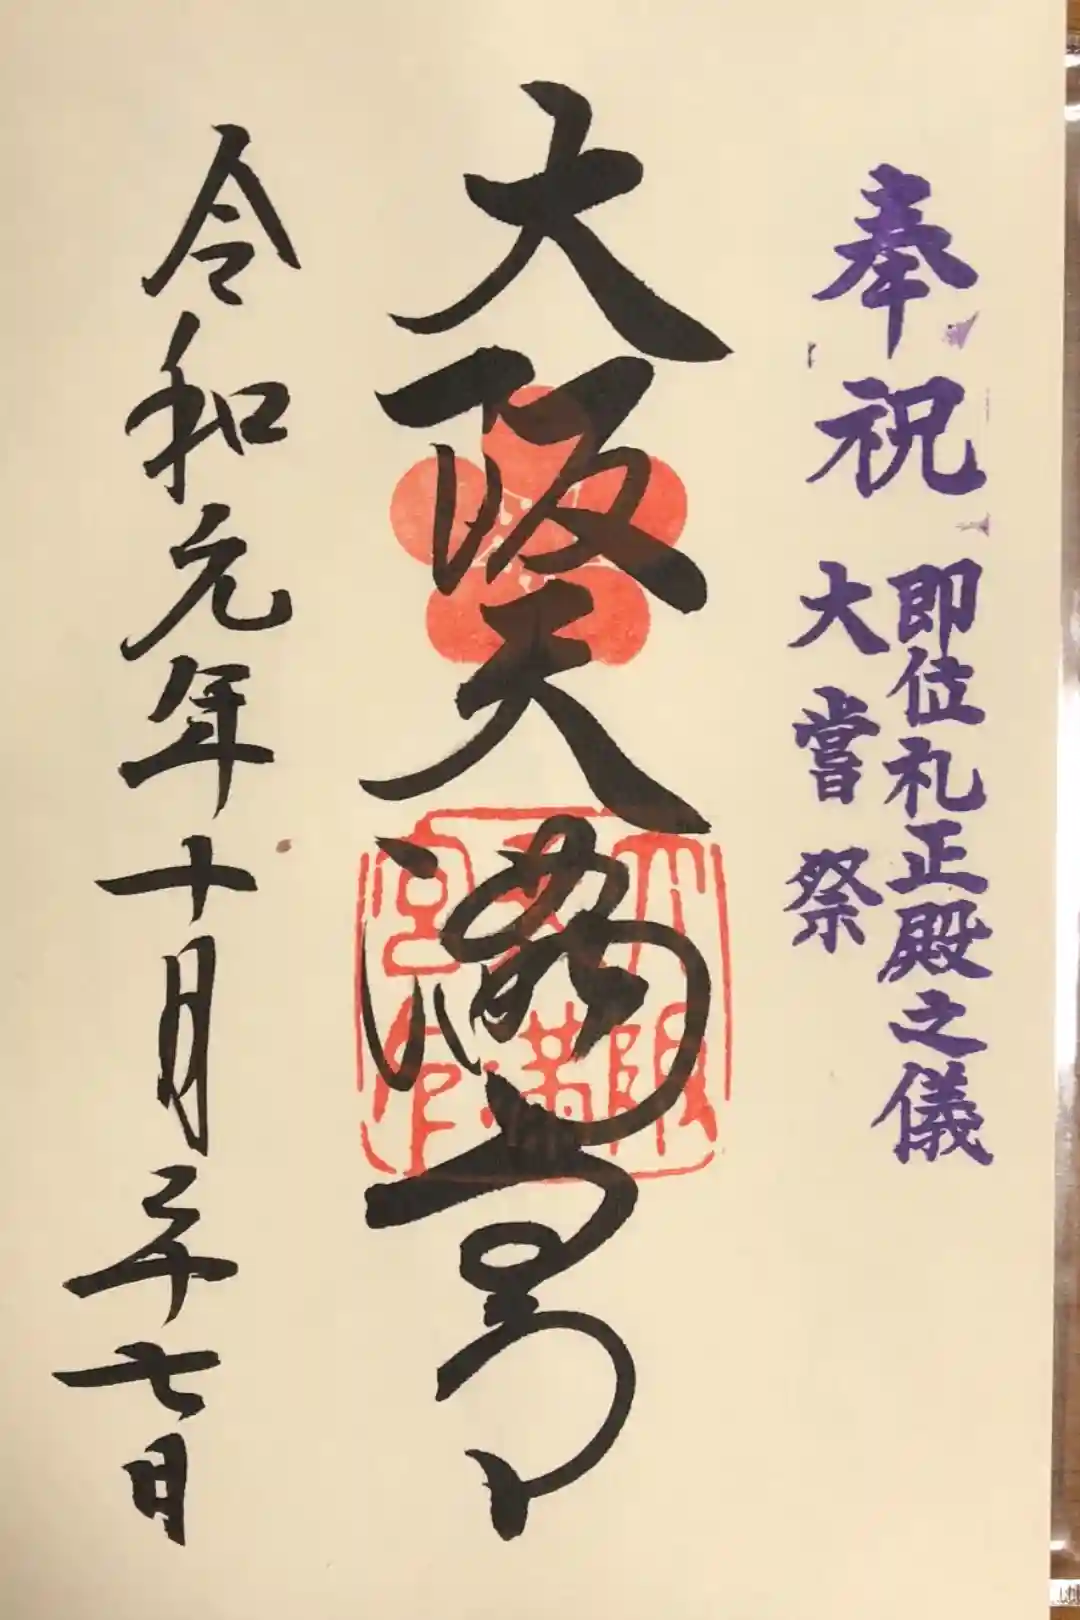 奉祝
即位礼正殿之儀
大嘗祭
大阪天満宮
大阪天満宮印
令和元年十月二十七日